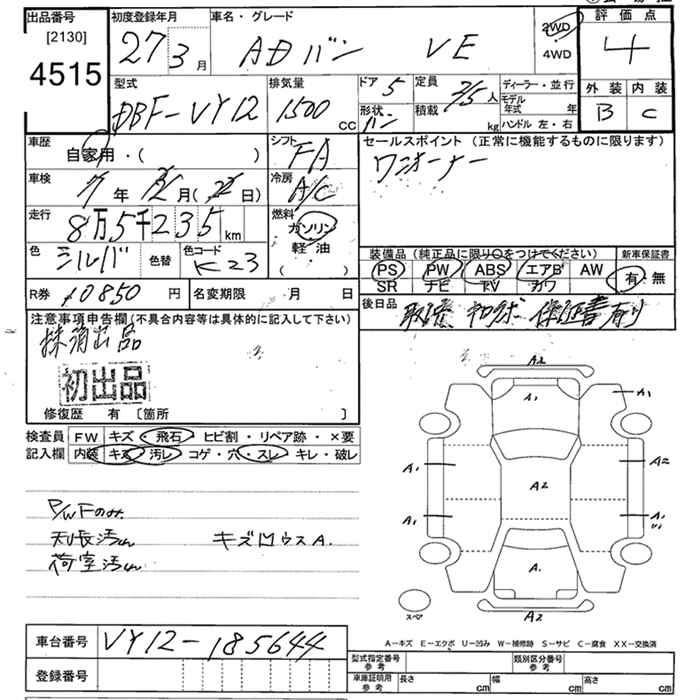 出品番号
[2130]
4515
初度登録年月
27 3月
車名・グレード
ADバン VE
2WD
・
4WD
評価点
4
外装 内装
B C
型式
DBF-VY12
排気量
1500
CC
ドア 5
形状 バン
定員 2/5人
積載 kg
ディーラー・並行
モデル年式 年
ハンドル 左・右
車歴
自家用・( )
シフト
FA
セールスポイント (正常に機能するものに限ります)
ワンオーナー
車検
7年 12月(22日)
冷房
A/C
走行
8万5千235km
燃料
ガソリン
軽油
( )
色
シルバ
色替
色コード
K23
装備品(純正品に限り○をつけてください)
PS PW ABS エアB AW
SR ナビ TV カワ
新車保証書
有 無
R券 10850円
名変期限 月 日
後日品
取説 保証書有り
注意事項申告欄(不具合内容等は具体的に記入して下さい)
抹消出品
初出品
修復歴 有 〔箇所 〕
検査員
記入欄
FW キズ・飛石・ヒビ割・リペア跡・×要
内装 キズ・汚レ・コゲ・穴・スレ・キレ・破レ
P/WFのみ
天張汚れ キズ口ウスA.
荷室汚れ
A2
A1
A1
A1
A2
A2
A1
A1
A.
スペア
A2
A-キズ E-エクボ U-凹み W-補修跡 S-サビ C-腐食 XX-交換済
車台番号 VY12-185644
登録番号
型式指定番号
参考
類別区分番号
参考
車庫証明用
参考
長さ cm
幅 cm
高さ cm